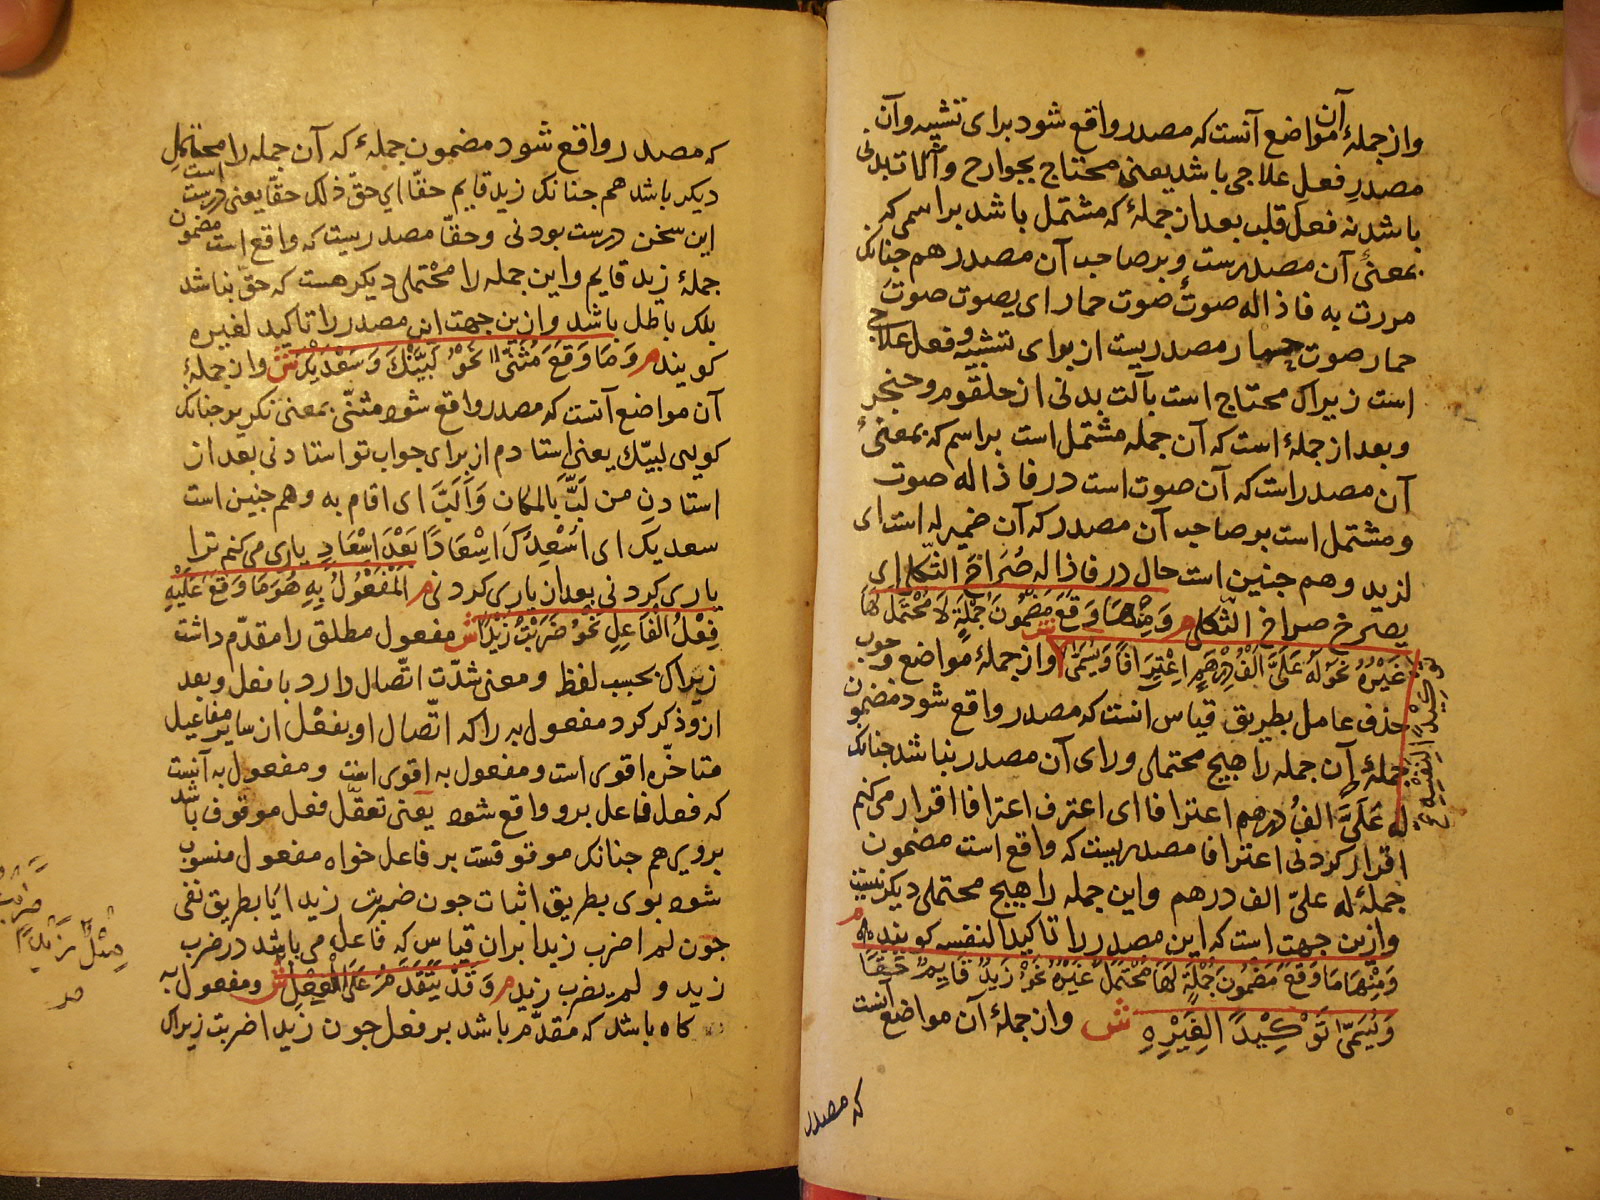 واز جملهٔ آن مواضع آنست که مصدر واقع شود برای تشبیه وآن
مصدرِ فعل علاجی باشد یعنی محتاج بجوارح وآلات بدنی
باشد نه فعل قلب بعد از جملهٔ که مشتمل باشد بر اسمی که
بمعنیٔ آن مصدرست وبر صاحب آن مصدر هم جنانک
مررت به فاذا له صوتٌ صوت حمار ای یصوت صوتَ
حمار صوت حمار مصدریست از برای تشبیه وفعل علاج
است زیراک محتاج است بآلت بدنی از حلقوم وحنجره
وبعد از جملهٔ است که آن جمله مشتمل است بر اسم که بمعنیٔ
آن مصدر است که آن صوت است در فاذا له صوت
ومشتمل است بر صاحب آن مصدر که آن ضمیر له است ای
لزید وهم جنین است حال در فاذا له صُراخ الثکلی ای
یصرخ صراخ الثّکلی م وَمِنْهَا مَا وَقَعَ مَضْمُونَ جُمْلَةٍ لَا مُحْتَمَلَ لَهَا
غَيْرُهُ نَحْوُ لَهُ عَلَيَّ اَلْفُ دِرْهَمٍ اِعْتِرَافًا وَيُسَمَّى ش واز جملهٔ مواضع وجوب
تَوْكِيْدًا لِنَفْسِهِ
حذف عامل بطریق قیاس انست که مصدر واقع شود مضمون
جملهٔ که آن جمله را هیج محتملی ورای آن مصدر نباشد جنانک
له عَلَيَّ الفُ درهم اعترافا ای اعترف اعترافا اقرار می کنم
اقرار کردنی اعترافا مصدریست که واقع است مضمون
جملهٔ له علیّ الف درهم واین جمله را هیج محتملی دیکر نیست
وازین جهت است که این مصدر را تاکیدا لنفسه کویند م
وَمِنْهَا مَا وَقَعَ مَضْمُونَ جُمْلَةٍ لَهَا مُحْتَمَلٌ غَيْرُهُ نَحْوُ زَيْدٌ قَايِمٌ حَقًّا
وَيُسَمَّى تَوْكِيْدًا لِغَيْرِهِ ش واز جملهٔ آن مواضع آنست
که مصدر
که مصدر واقع شود مضمون جملهٔ که آن جمله را محتمل
دیکر باشد هم جنانک زید قایم حقّا ای حقّ ذلک حقّا یعنی درست است
این سخن درست بودنی وحقّا مصدریست که واقع است مضمون
جملهٔ زید قایم واین جمله را مُحْتملی دیکر هست که حقّ نباشد
بلک باطل باشد وازین جهت این مصدر را تاکید لغیره
کویند م وَمَا وَقَعَ مُثَنًّى نَحْوُ لَبَّيْكَ وَسَعْدَيْكَ ش واز جملهٔ
آن مواضع آنست که مصدر واقع شود مثنّی بمعنی تکریر جنانک
کویی لبیّک یعنی استادم از برای جواب تو استادنی بعد از
استادن من لَبَّ بالمکان وَاَلَبَّ ای اقام به وهم جنین است
سعدیک ای اُسْعِدُكَ اِسْعَادًا بَعْدَ اِسْعَادٍ یاری می کنم ترا
یاری کردنی بعد از یاری کردنی م اَلْمَفْعُولُ بِهِ هُوَ مَا وَقَعَ عَلَيْهِ
فِعْلُ الْفَاعِلِ نَحْوُ ضَرَبْتُ زَيْدًا ش مفعول مطلق را مقدّم داشت
زیراک بحسب لفظ ومعنی شدّت اتّصال دارد با فعل وبعد
ازو ذکر کرد مفعول به را که اتّصال او بفعل از سایر مفاعیل
متاخّره اقوی است ومفعول به آنست
که فعل فاعل برو واقع شود یعنی تعقّل فعل موقوف باشد
بروی هم جنانک موقوفست بر فاعل خواه مفعول منسوب
شود بوی بطریق اثبات جون ضربت زیدا یا بطریق نفی
جون لم اضرب زیدا بران قیاس که فاعل می باشد در ضرب
زید و لم یضرب زید م وَقَدْ يَتَقَدَّمُ عَلَى الْفِعْلِ ش ومفعول به
کاه باشد که مقدّم باشد بر فعل جون زیدا ضربت زیراک
مِثْلُ زَيْدًا
ضربت